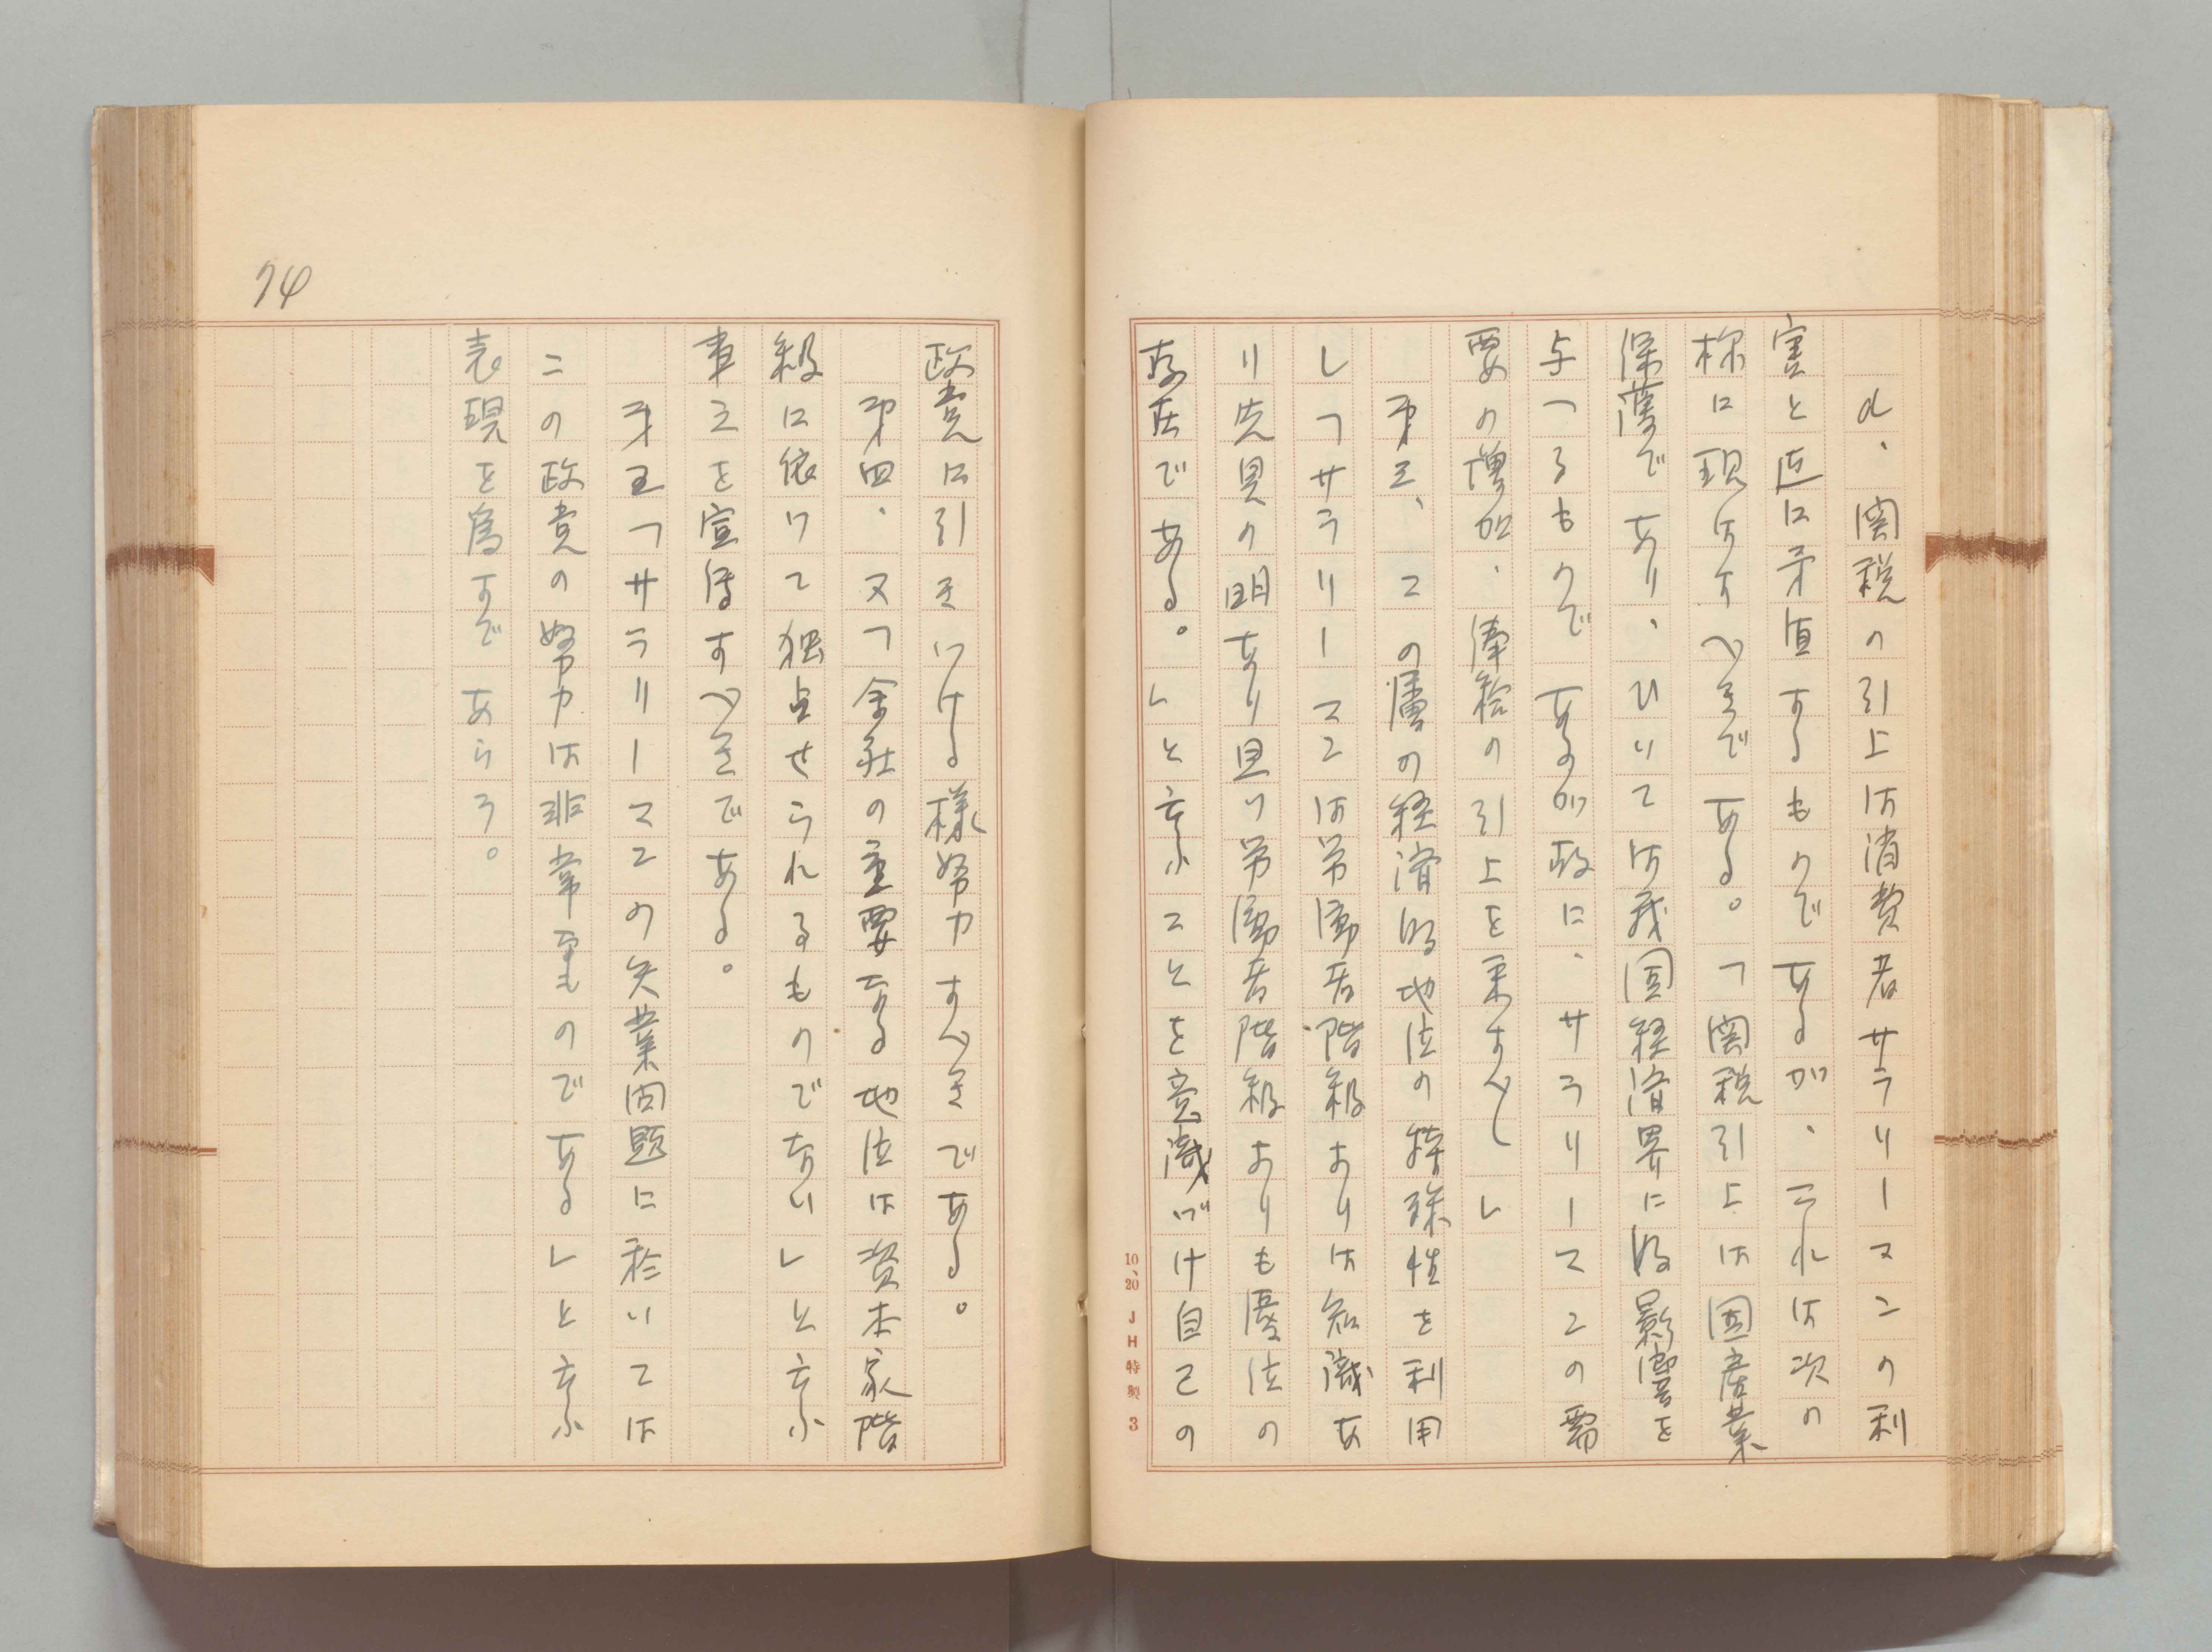 d、関税の引上は消費者サラリーマンの利
害と直に矛盾するものであるが、これは次の
様に現はすべきである。「関税引上は国産業
保護であり、ひいては我国経済界に好影響を
与へるものであるが故に、サラリーマンの需
要の増加、俸給の引上を来すべし」
第三、この層の経済的地位の特殊性を利用
し「サラリーマンは労働者階級よりは知識あ
り先見の明あり且つ労働者階級よりも優位の
存在である。」と云ふことを意識づけ自己の
10、20 JH特製 3
政党に引きいける様努力すべきである。
第四、又「会社の重要なる地位は資本家階
級に依つて独占せられるものでない」と云ふ
事を宣伝すべきである。
第五「サラリーマンの失業問題に於いては
この政党の努力は非常なものである」と云ふ
表現を為すであらう。
74